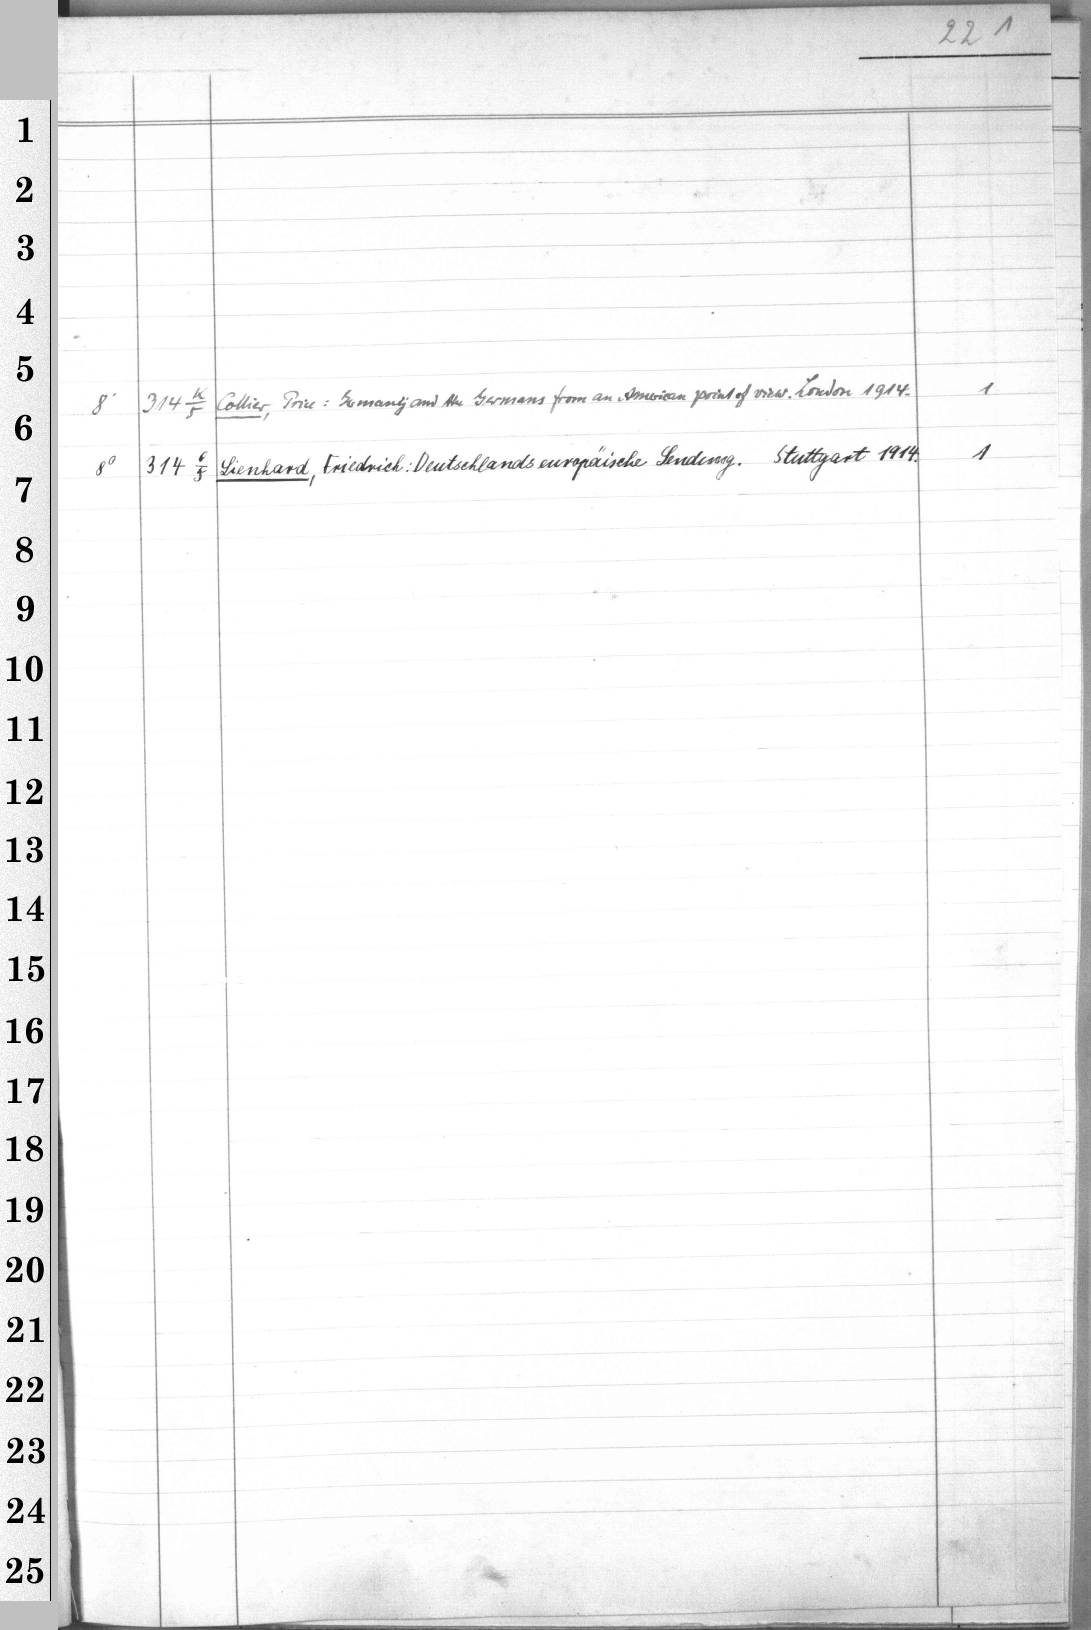 22 1
1
2
3
4
5
8° 314 K/5 Collier, Price: Germany and the Germans from an American point of view. London 1914. 1
6
8° 314 6/5 Lienhard, Friedrich: Deutschlands europäische Sendung. Stuttgart 1914. 1
7
8
9
10
11
12
13
14
15
16
17
18
19
20
21
22
23
24
25